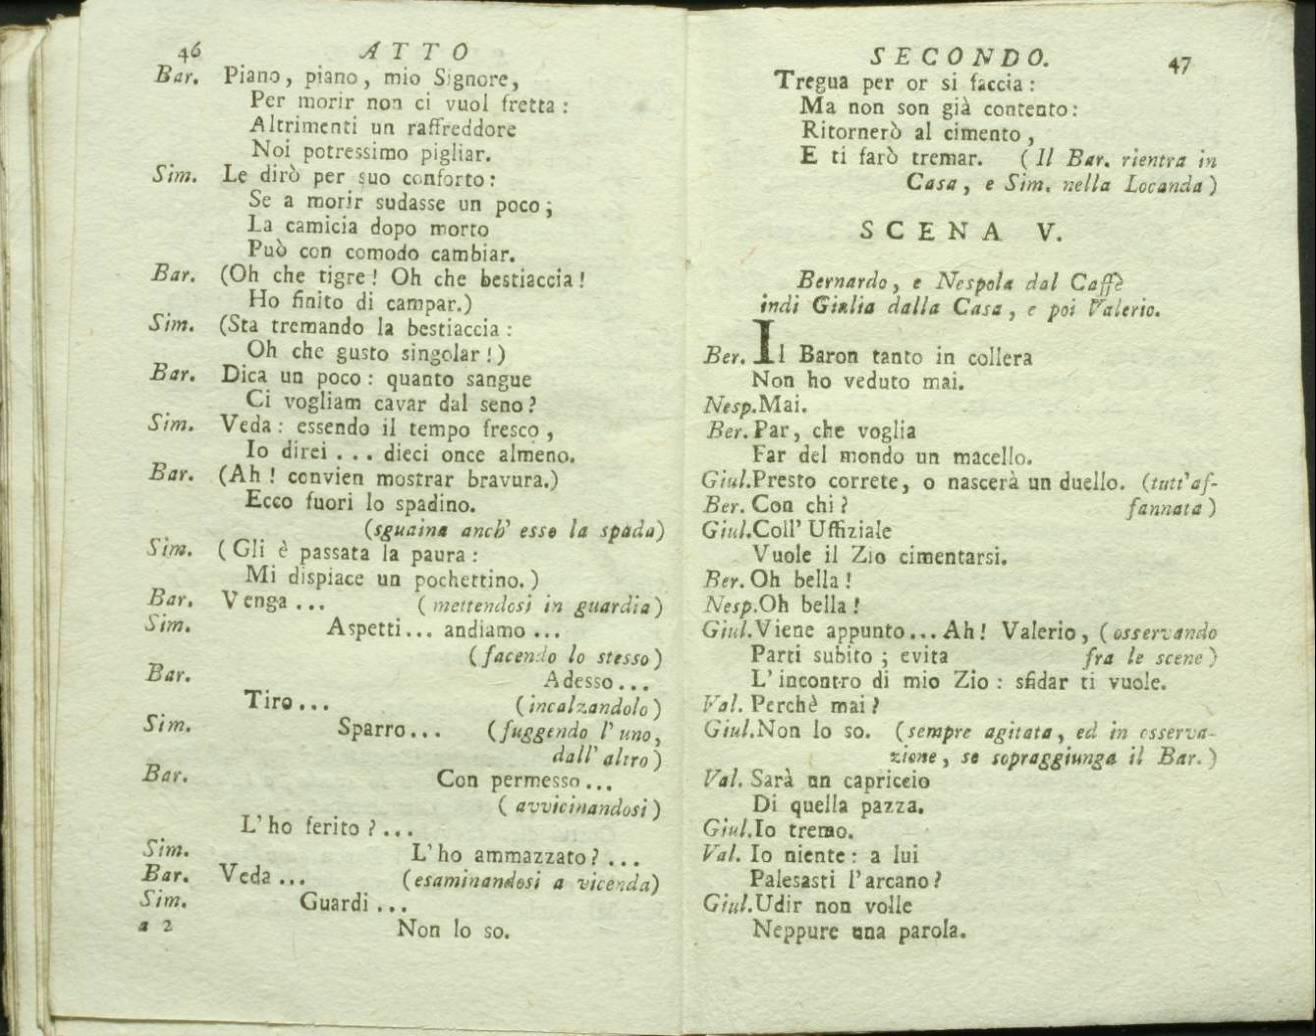 46 ATTO
Bar. Piano, piano, mio Signore,
Per morir non ci vuol fretta:
Altrimenti un raffreddore
Noi potressimo pigliar.
Sim. Le dirò per suo conforto:
Se a morir sudasse un poco;
La camicia dopo morto
Può con comodo cambiar.
Bar. (Oh che tigre! Oh che bestiaccia!
Ho finito di campar.)
Sim. (Sta tremando la bestiaccia:
Oh che gusto singolar!)
Bar. Dica un poco: quanto sangue
Ci vogliam cavar dal seno?
Sim. Veda: essendo il tempo fresco,
Io direi... dieci once almeno.
Bar. (Ah! convien mostrar bravura.)
Ecco fuori lo spadino.
(sguaina anch' esso la spada)
Sim. (Gli è passata la paura:
Mi dispiace un pochettino.)
Bar. Venga... (mettendosi in guardia)
Sim. Aspetti... andiamo...
(facendo lo stesso)
Bar. Adesso...
Tiro... (incalzandolo)
Sim. Sparro... (fuggendo l' uno,
dall' altro)
Bar. Con permesso...
(avvicinandosi)
L' ho ferito?...
Sim. L' ho ammazzato?...
Bar. Veda... (esaminandosi a vicenda)
Sim. Guardi...
a 2 Non lo so.
SECONDO. 47
Tregua per or si faccia:
Ma non son già contento:
Ritornerò al cimento,
E ti farò tremar. (Il Bar. rientra in
Casa, e Sim. nella Locanda)
SCENA V.
Bernardo, e Nespola dal Caffè
indi Giulia dalla Casa, e poi Valerio.
Ber. Il Baron tanto in collera
Non ho veduto mai.
Nesp. Mai.
Ber. Par, che voglia
Far del mondo un macello.
Giul. Presto correte, o nascerà un duello. (tutt' af-
Ber. Con chi? fannata)
Giul. Coll' Uffiziale
Vuole il Zio cimentarsi.
Ber. Oh bella!
Nesp. Oh bella!
Giul. Viene appunto... Ah! Valerio, (osservando
Parti subito; evita fra le scene)
L' incontro di mio Zio: sfidar ti vuole.
Val. Perchè mai?
Giul. Non lo so. (sempre agitata, ed in osserva-
zione, se sopraggiunga il Bar.)
Val. Sarà un capriccio
Di quella pazza.
Giul. Io tremo.
Val. Io niente: a lui
Palesasti l' arcano?
Giul. Udir non volle
Neppure una parola.